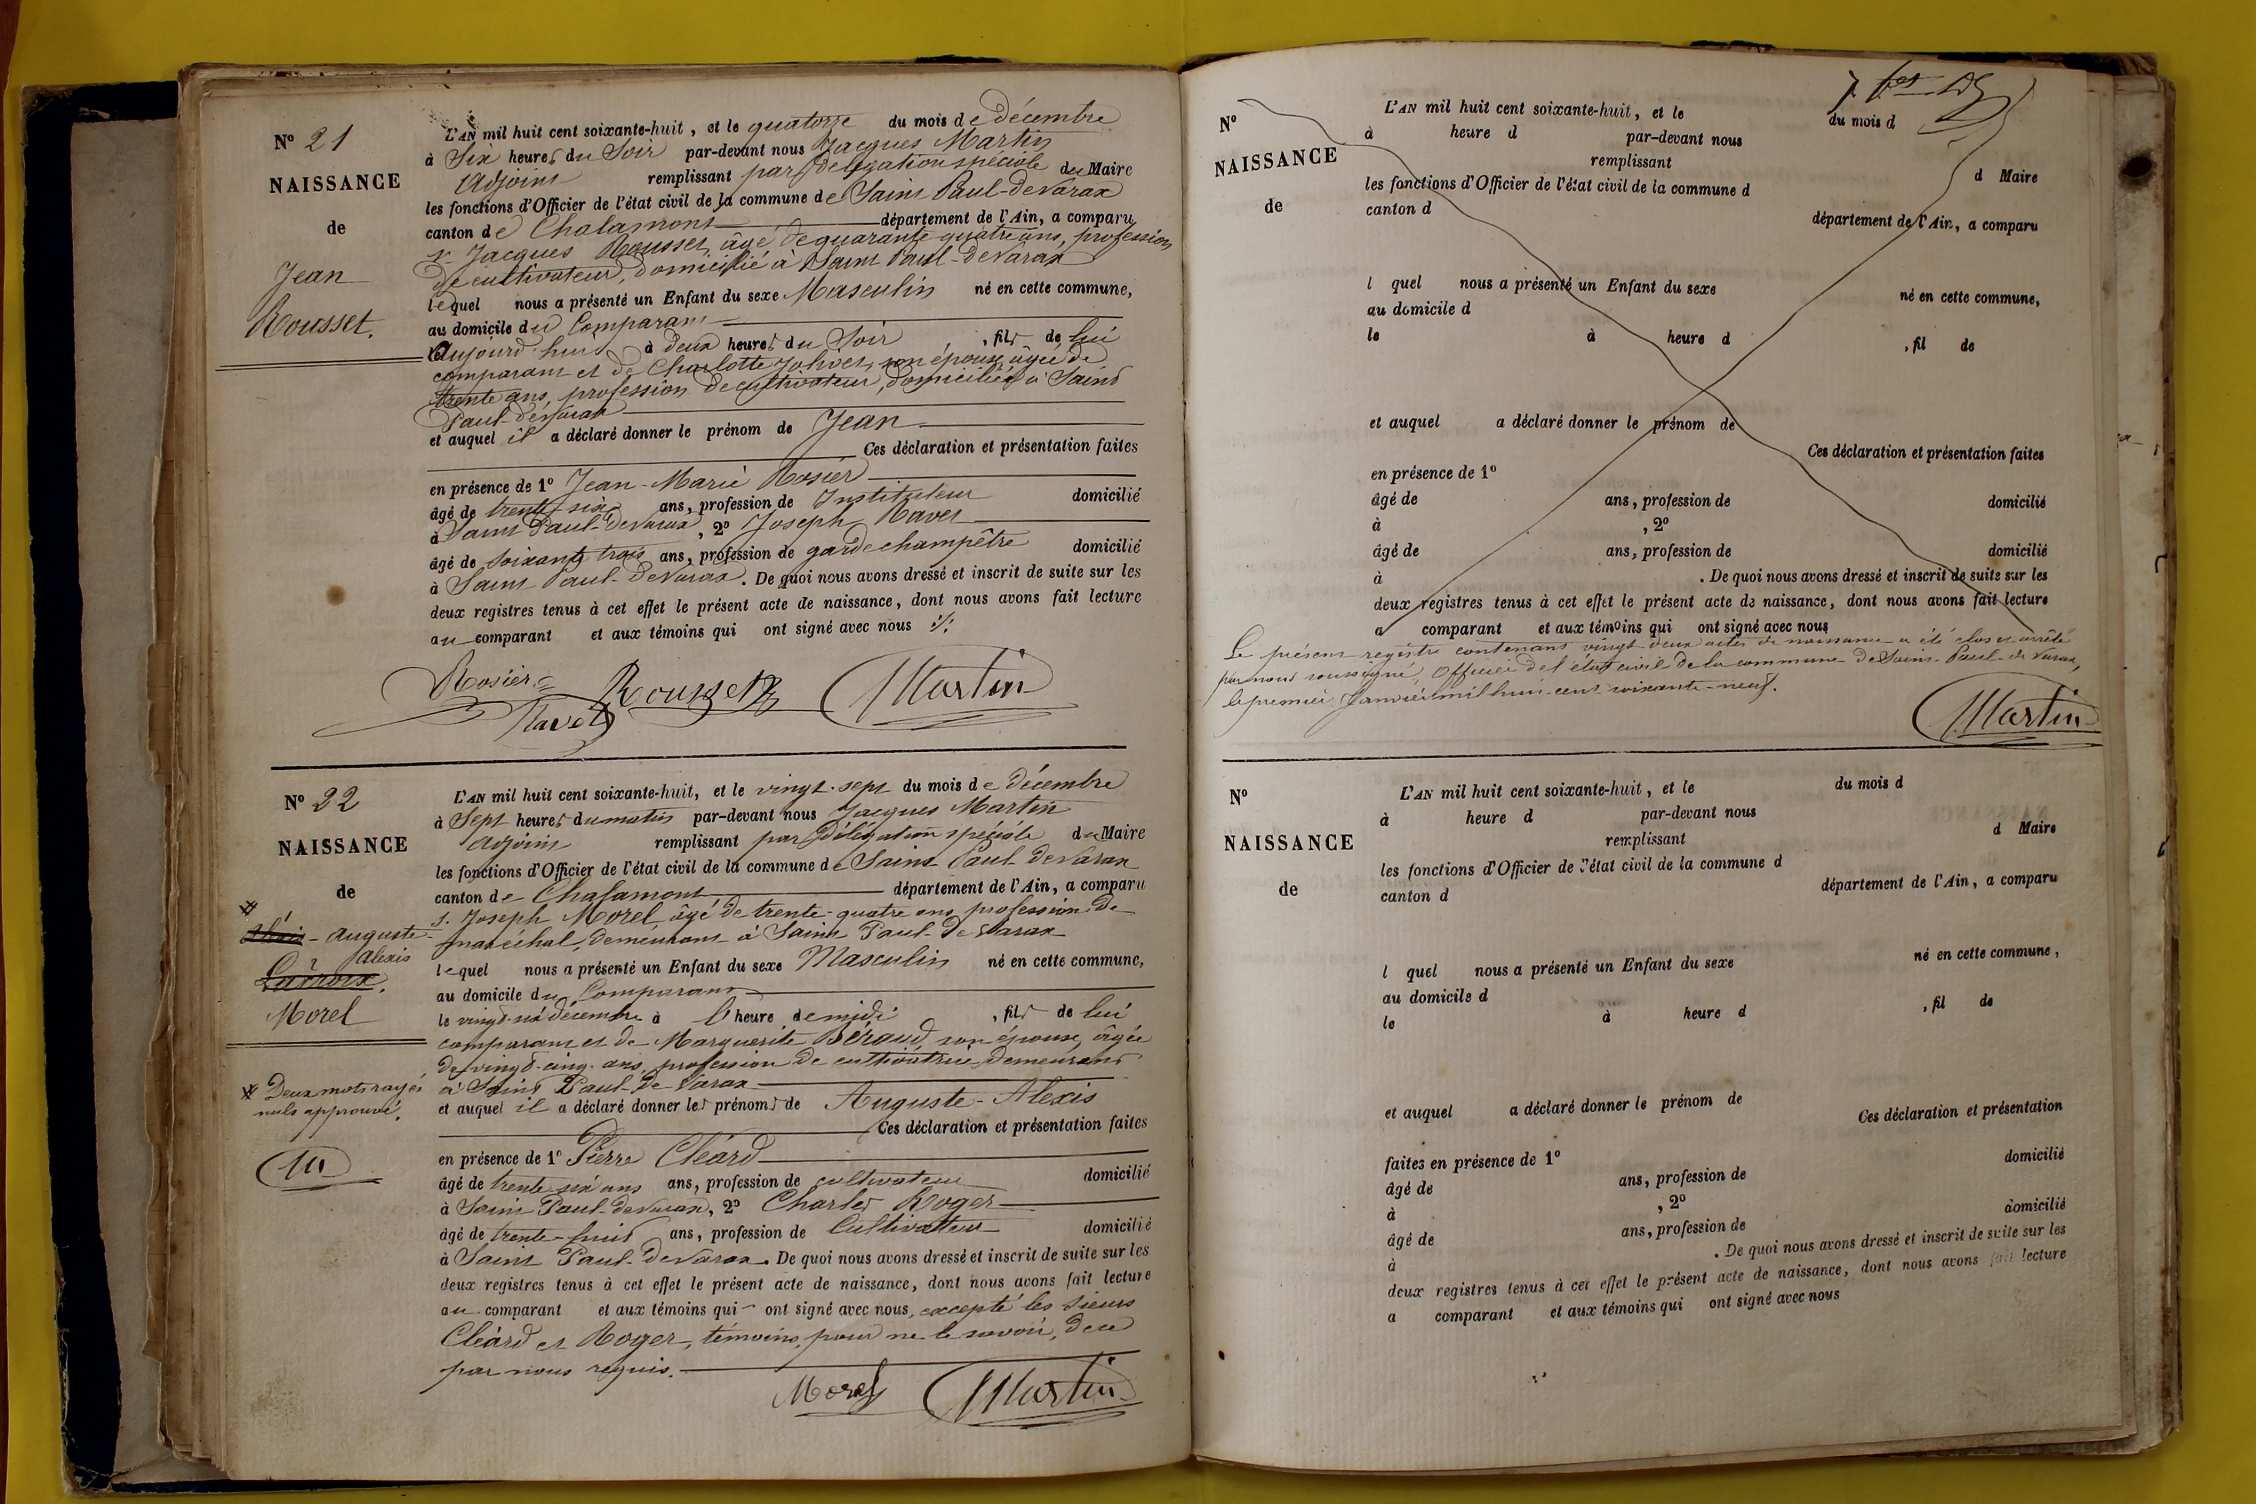 N° 21
NAISSANCE
de
Jean
Rousset.
L'AN mil huit cent soixante-huit, et le quatorze du mois de décembre
à Six heures du Soir par-devant nous Jacques Martin
Adjoint remplissant par délégation spéciale du Maire
les fonctions d'Officier de l'état civil de la commune de Saint Paul-de Varax
canton de Chalamont département de l'Ain, a comparu
sr Jacques Rousset, âgé de quarante quatre ans, profession
de cultivateur, domicilié à Saint Paul-de Varax
lequel nous a présenté un Enfant du sexe Masculin né en cette commune,
au domicile du Comparant
aujourd'hui à deux heures du Soir , fils de lui
comparant et de Charlotte Jolivet, son épouse, âgée de
trente ans, profession de cultivateur, domiciliée à Saint
Paul-de Varax
et auquel il a déclaré donner le prénom de Jean
Ces déclaration et présentation faites
en présence de 1° Jean-Marie Rosier
âgé de trente-six ans, profession de Instituteur domicilié
à Saint Paul-de Varax, 2° Joseph Ravet
âgé de soixante trois ans, profession de garde champêtre domicilié
à Saint Paul-de Varax. De quoi nous avons dressé et inscrit de suite sur les
deux registres tenus à cet effet le présent acte de naissance, dont nous avons fait lecture
au comparant et aux témoins qui ont signé avec nous ./.
Rosier Rousset Martin
Ravet
N° 22
NAISSANCE
de
Auguste
Alexis
Lacroix.
Morel
Deux mots rayés
nuls approuvé.
L'AN mil huit cent soixante-huit, et le vingt-sept du mois de décembre
à Sept heures du matin par-devant nous Jacques Martin
Adjoint remplissant par délégation spéciale du Maire
les fonctions d'Officier de l'état civil de la commune de Saint Paul de Varax
canton de Chalamont département de l'Ain, a comparu
s. Joseph Morel âgé de trente-quatre ans profession de
maréchal, demeurant à Saint Paul-de Varax
lequel nous a présenté un Enfant du sexe Masculin né en cette commune,
au domicile du Comparant
le vingt-six décembre à l' heure de midi , fils de lui
comparant et de Marguerite Béraud son épouse, âgée
de vingt-cinq ans, profession de cultivatrice demeurant
à Saint Paul-de Varax
et auquel il a déclaré donner les prénoms de Auguste-Alexis
Ces déclaration et présentation faites
en présence de 1° Pierre Cléard
âgé de trente-six ans ans, profession de cultivateur domicilié
à Saint Paul-de Varax, 2° Charles Roger
âgé de trente-huit ans, profession de Cultivateur domicilié
à Saint Paul-de Varax. De quoi nous avons dressé et inscrit de suite sur les
deux registres tenus à cet effet le présent acte de naissance, dont nous avons fait lecture
au comparant et aux témoins qui ont signé avec nous, excepté les sieurs
Cléard et Roger, témoins, pour ne le savoir, de ce
par nous requis.
Morel Martin
N°
NAISSANCE
de
L'AN mil huit cent soixante-huit, et le du mois d
à heure d par-devant nous
remplissant d Maire
les fonctions d'Officier de l'état civil de la commune d
canton d département de l'Ain, a comparu
l quel nous a présenté un Enfant du sexe né en cette commune,
au domicile d
le à heure d , fil de
et auquel a déclaré donner le prénom de
Ces déclaration et présentation faites
en présence de 1°
âgé de ans, profession de domicilié
à , 2°
âgé de ans, profession de domicilié
à . De quoi nous avons dressé et inscrit de suite sur les
deux registres tenus à cet effet le présent acte de naissance, dont nous avons fait lecture
a comparant et aux témoins qui ont signé avec nous
Le présent registre contenant vingt-deux actes de naissance a été clos et arrêté
par nous soussigné, Officier de l'état civil de la commune de Saint-Paul-de Varax,
le premier Janvier mil huit-cent soixante-neuf.
Martin
N°
NAISSANCE
de
L'AN mil huit cent soixante-huit, et le du mois d
à heure d par-devant nous
remplissant d Maire
les fonctions d'Officier de l'état civil de la commune d
canton d département de l'Ain, a comparu
l quel nous a présenté un Enfant du sexe né en cette commune,
au domicile d
le à heure d , fil de
et auquel a déclaré donner le prénom de
Ces déclaration et présentation
faites en présence de 1° domicilié
âgé de ans, profession de
à , 2° domicilié
âgé de ans, profession de
à . De quoi nous avons dressé et inscrit de suite sur les
deux registres tenus à cet effet le présent acte de naissance, dont nous avons fait lecture
a comparant et aux témoins qui ont signé avec nous